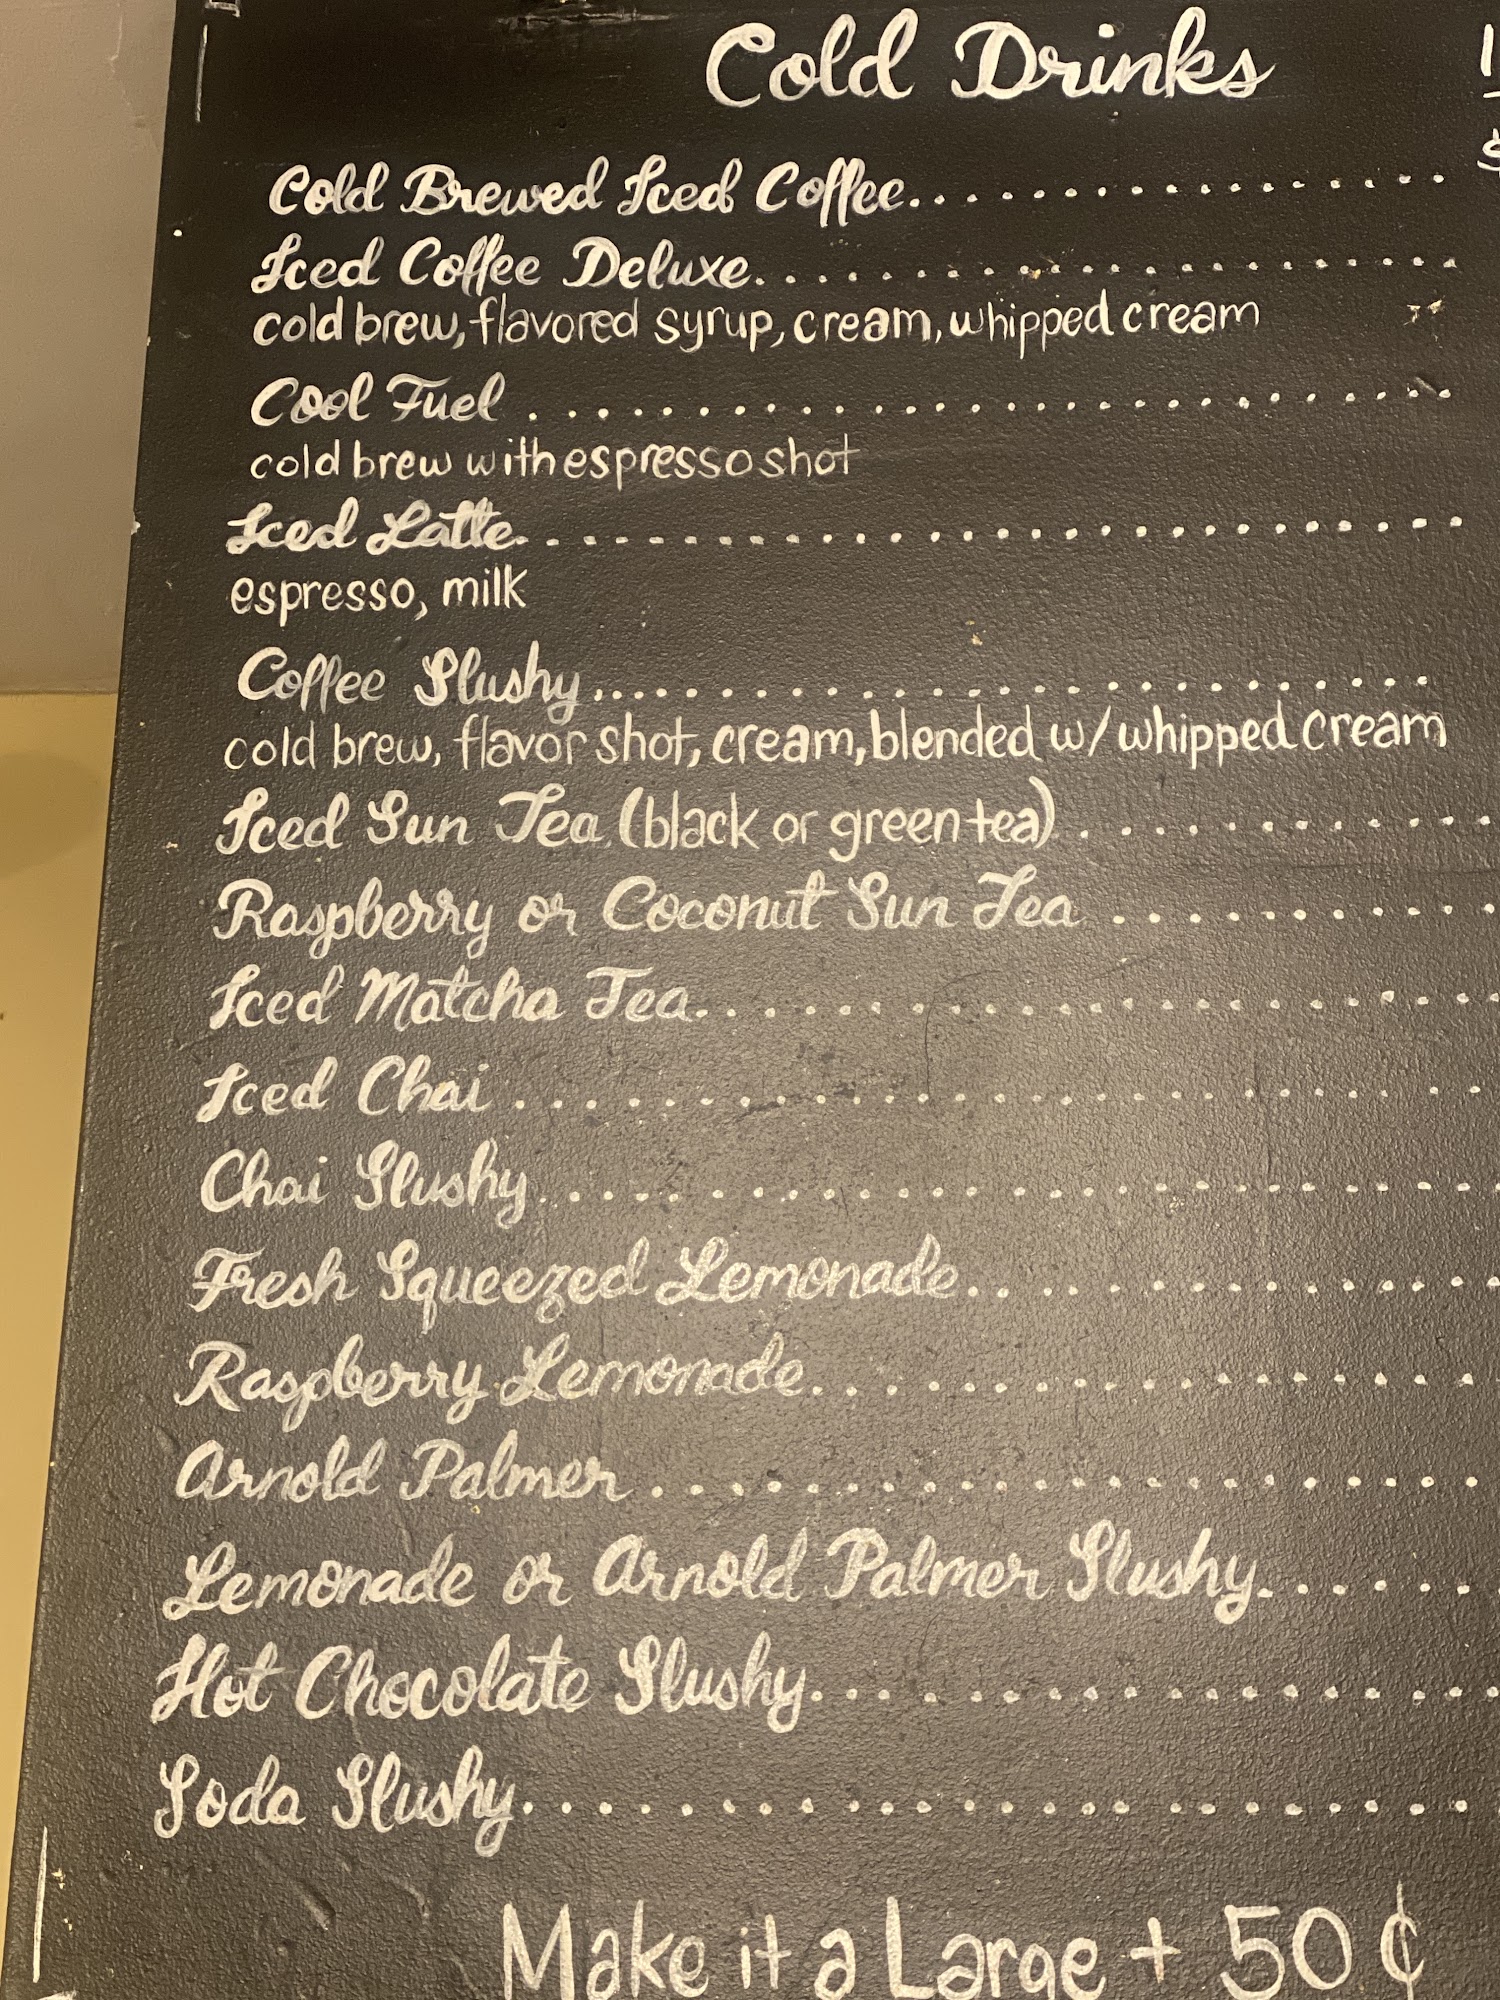 Cold Drinks
Cold Brewed Iced Coffee
Iced Coffee Deluxe
cold brew, flavored syrup, cream, whipped cream
Cool Fuel
cold brew with espresso shot
Iced Latte
espresso, milk
Coffee Slushy
cold brew, flavor shot, cream, blended w/ whipped cream
Iced Sun Tea (black or green tea)
Raspberry or Coconut Sun Tea
Iced Matcha Tea
Iced Chai
Chai Slushy
Fresh Squeezed Lemonade
Raspberry Lemonade
Arnold Palmer
Lemonade or Arnold Palmer Slushy
Hot Chocolate Slushy
Soda Slushy
Make it a Large + 50 ¢